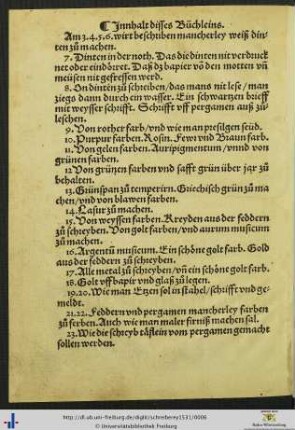 ¶ Innhalt disses Büchleins.
Am 3.4.5.6. wirt beschriben mancherley weiß din-
ten zu machen.
7. Dinten in der noth. Das die dinten nit verdruck
net oder eindörret. Daß dz bapier võ den motten vñ
meüsen nit gefressen werd.
8. On dintẽ zu schreiben / das mans nit lese / man
ziegs dann durch ein wasser. Ein schwartzen brieff
mit weysser schrifft. Schrifft vff pergamen auß zü-
leschen.
9. Von rother farb / vnd wie man presilgen seüd.
10. Purpur farben. Rosin. Fewr vnd Braun farb.
11. Von gelen farben. Auripigmentum / vnnd von
grünen farben.
12 Von grünen farben vnd safft grün über jar zu
behalten.
13. Grünspan zu temperirn. Griechisch grün zu ma
chen / vnd von blawen farben.
14. Lasur zu machen.
15. Von weyssen farben. Kreyden aus der feddern
zu schreyben. Von golt farben / vnd aurum musicum
zu machen.
16. Argentũ musicum. Ein schöne golt farb. Gold
aus der feddern zu schreyben.
17. Alle metal zu schreyben / vñ ein schöne golt farb.
18. Golt vff bapir vnd glaß zu legen.
19.20. Wie man Etzen sol in stahel / schrifft vnd ge-
meldt.
21.22. Feddern vnd pergamen mancherley farben
zu ferben. Auch wie man maler firniß machen sal.
23. Wie die schreyb täflein vom pergamen gemacht
sollen werden.
http://dl.ub.uni-freiburg.de/diglit/schreiberey1531/0006
© Universitätsbibliothek Freiburg
Baden-Württemberg